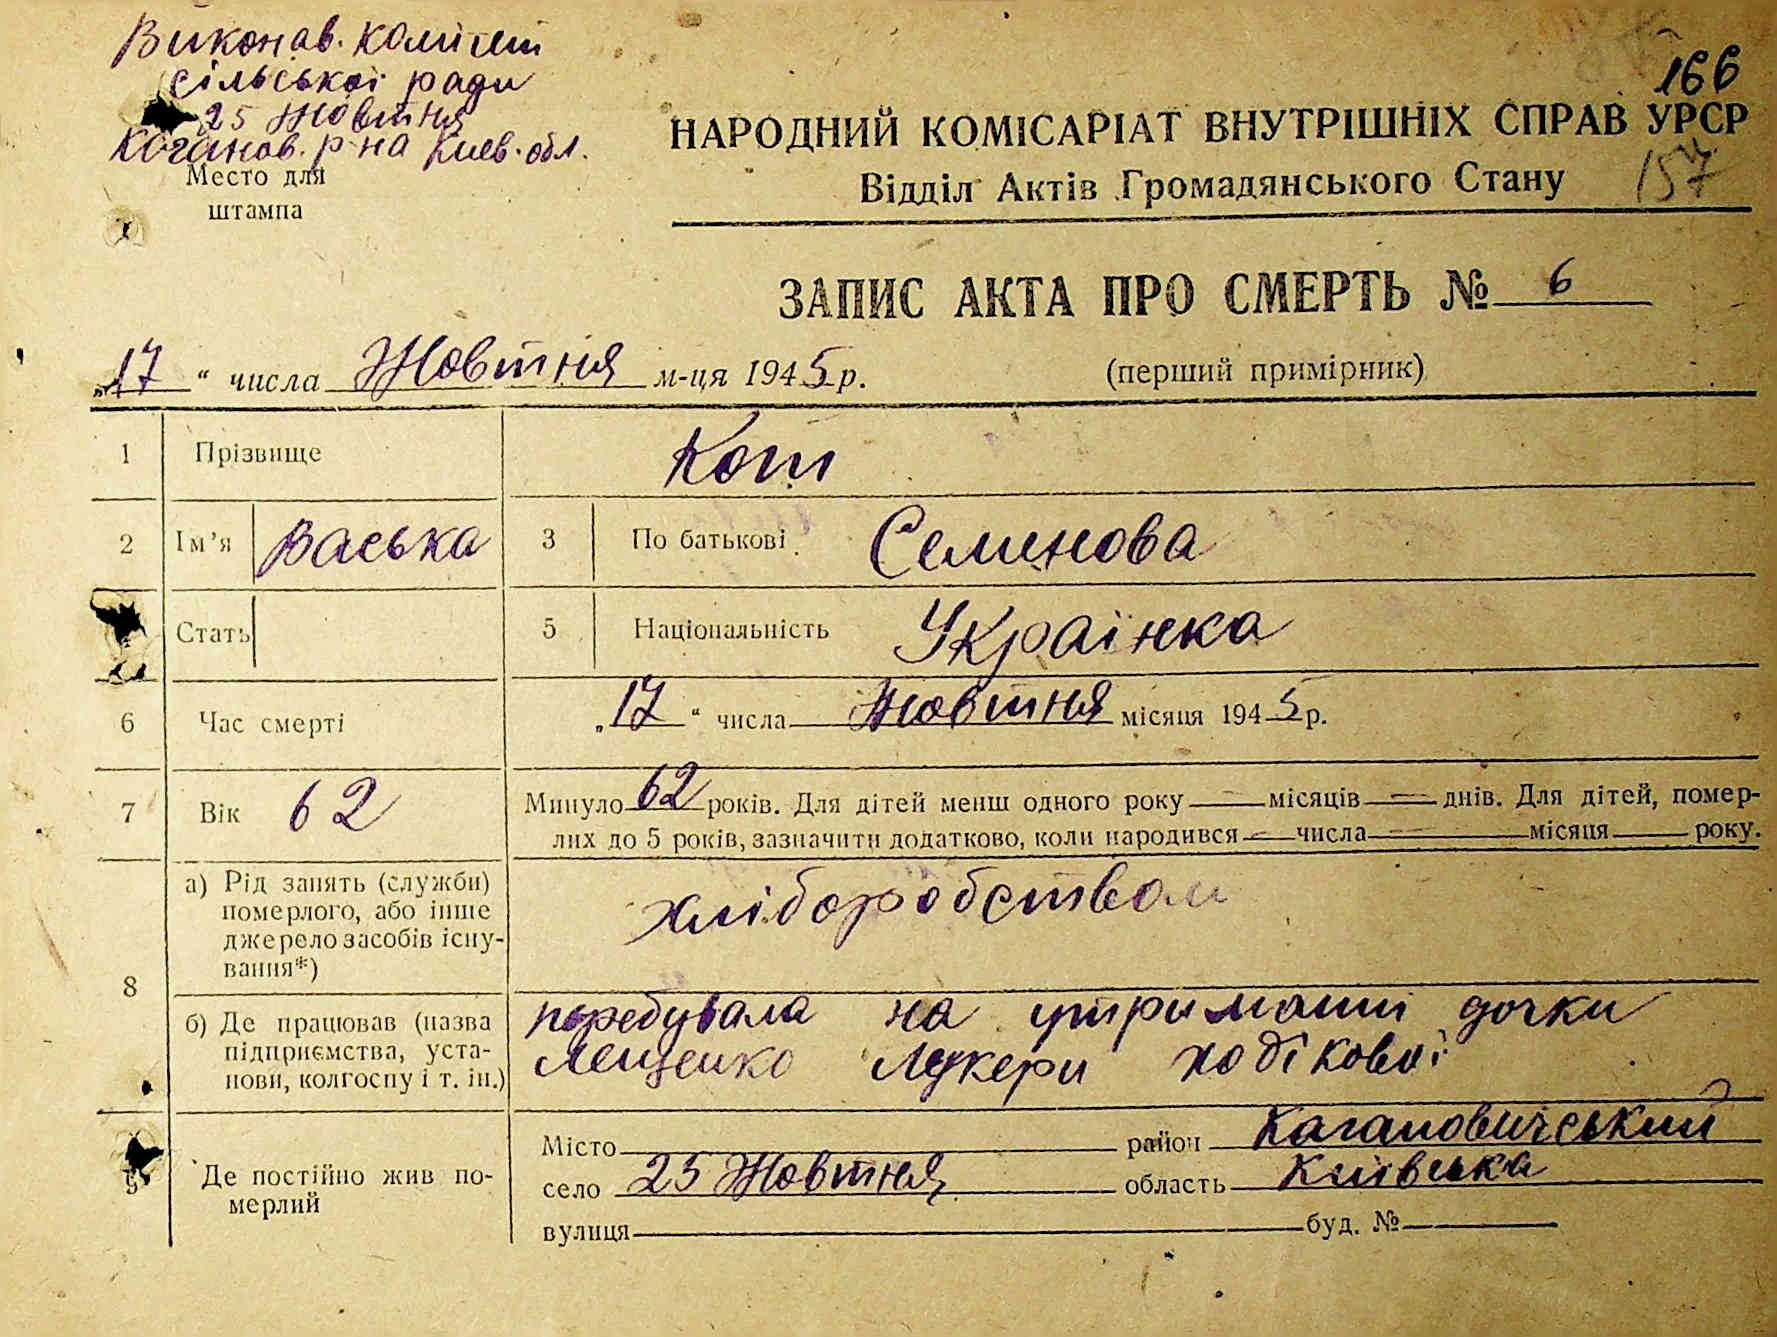 Виконав. комітет
сільської ради
25 Жовтня
Каганов. р-на Киев. обл.
Место для
штампа
166
НАРОДНИЙ КОМІСАРІАТ ВНУТРІШНІХ СПРАВ УРСР
Відділ Актів Громадянського Стану
157
ЗАПИС АКТА ПРО СМЕРТЬ № 6
„17“ числа Жовтня м-ця 1945 р.
(перший примірник)
1 Прізвище Кот
2 Ім'я Васька 3 По батькові Семенова
Стать 5 Національність Українка
6 Час смерті „17“ числа Жовтня місяця 1945 р.
7 Вік 62 Минуло 62 років. Для дітей менш одного року — місяців — днів. Для дітей, помер-
лих до 5 років, зазначити додатково, коли народився — числа — місяця — року.
8 а) Рід занять (служби)
померлого, або інше
джерело засобів існу-
вання*)
хліборобством
б) Де працював (назва
підприємства, уста-
нови, колгоспу і т. ін.)
перебувала на утриманні дочки
Лещенко Лукери
9 Де постійно жив по-
мерлий
Місто — район Кагановичський
село 25 Жовтня область Київська
вулиця — буд. № —